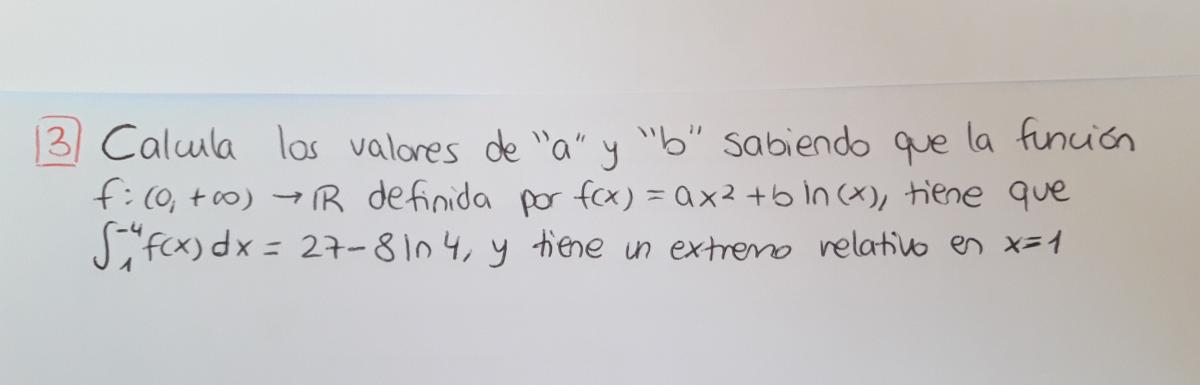 3 Calcula los valores de "a" y "b" sabiendo que la función
f: (0, +∞) → ℝ definida por f(x) = ax² + b ln(x), tiene que
∫₁⁻⁴ f(x) dx = 27 - 8 ln 4, y tiene un extremo relativo en x=1